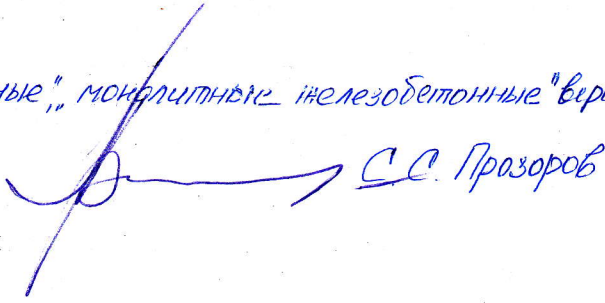 ные", „монолитные железобетонные" вер
С.С. Прозоров